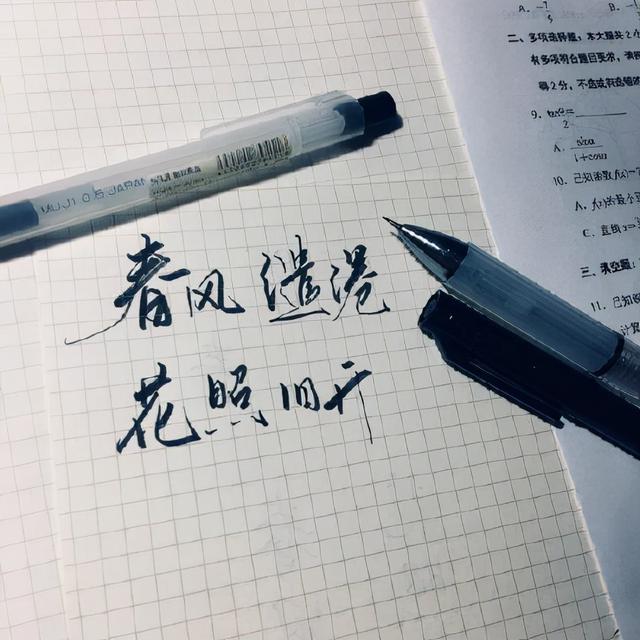 春风缱绻
花照旧开
MUJI 0.5 JAPAN
A. -7/5 B. -
二、多项选择题：本大题共2小
有多项符合题目要求，
得2分，不选或有选错的
9. tan α/2 =
A. sinα/1+cosα
10. 已知函数f(x)=
A. f(x)的最小
C. 直线x=
三、填空题：
11. 已知
计算